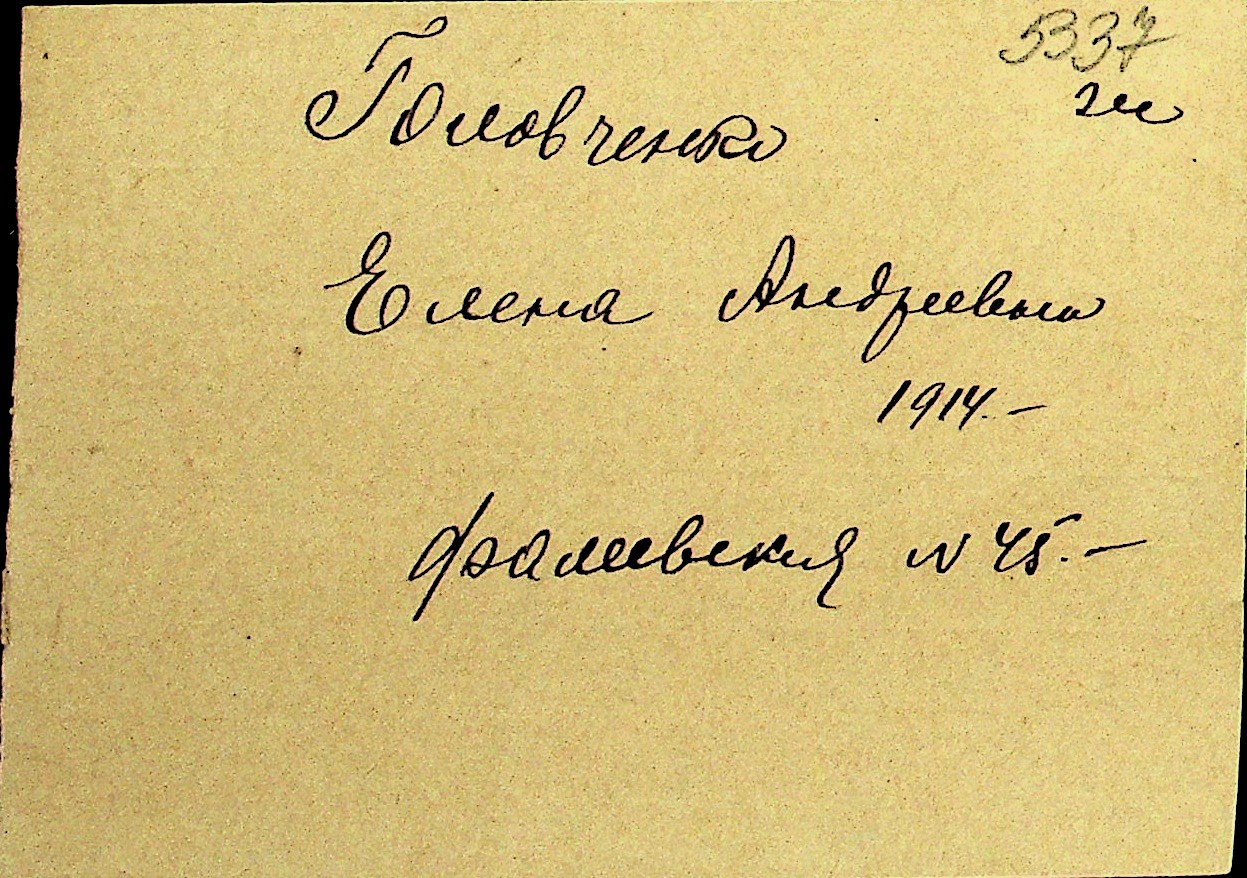 5337
Головченко
Елена Андреевна
1914.-
Фалеевская N 45.-